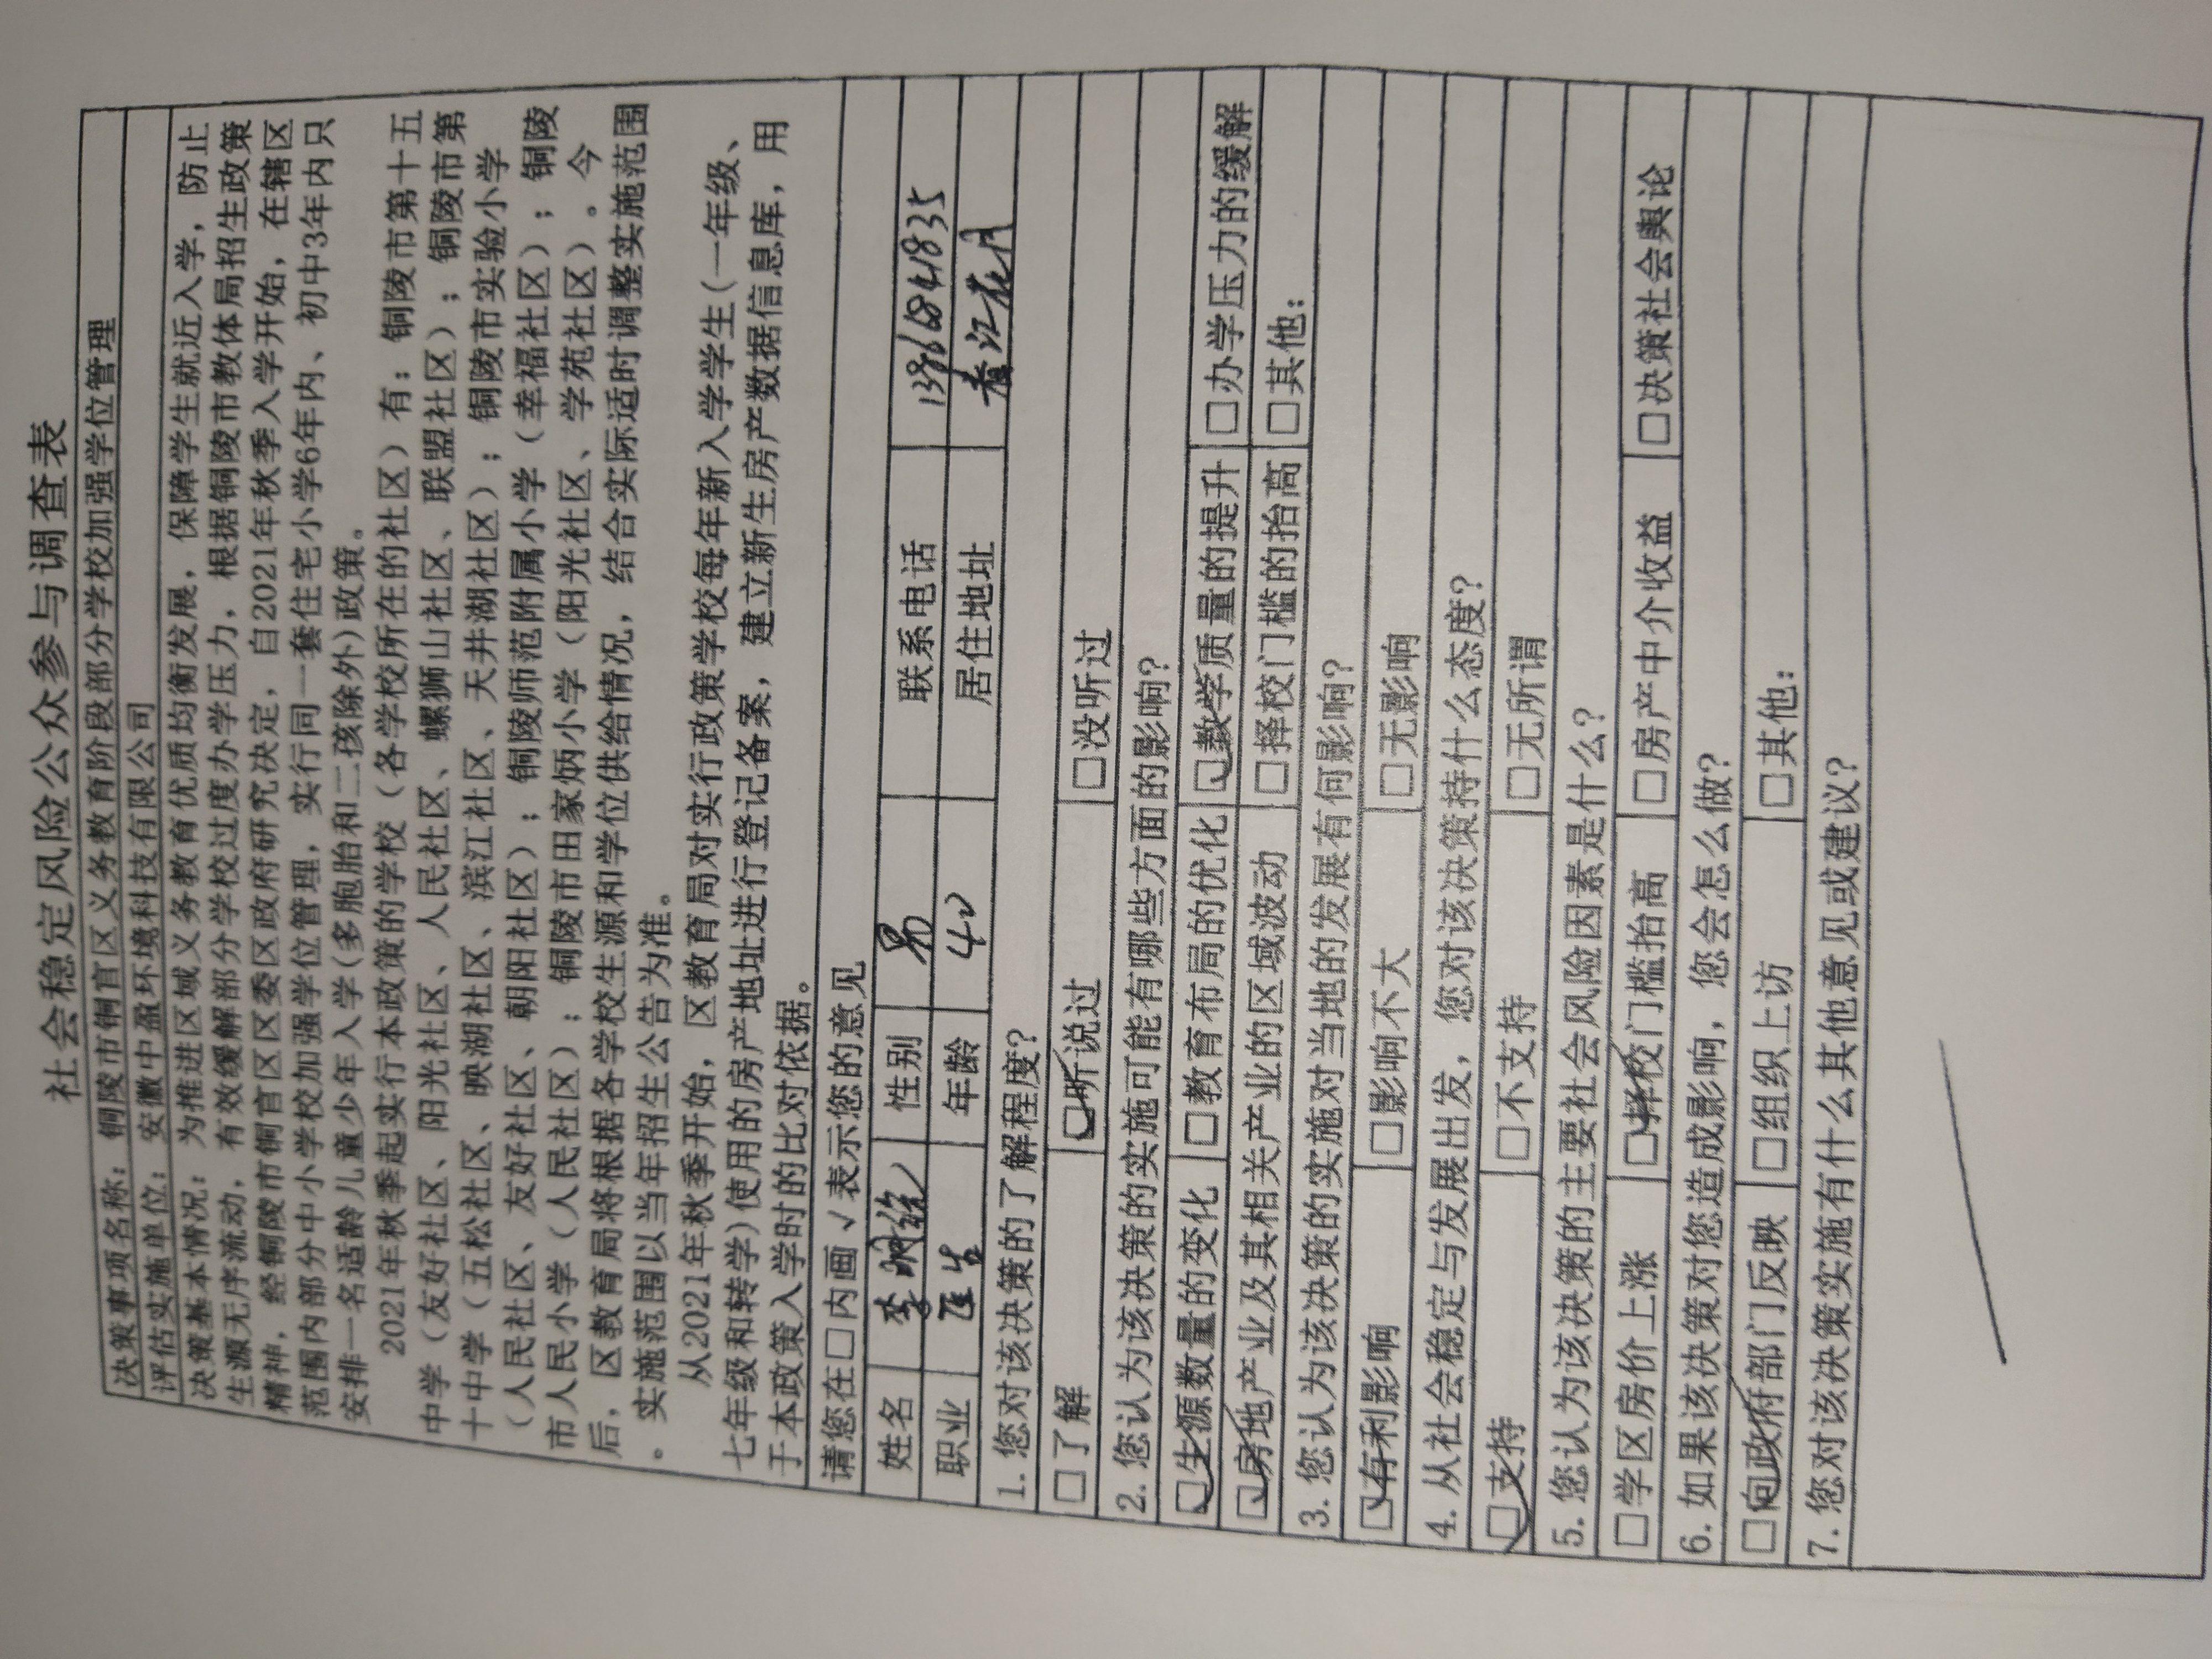 社会稳定风险公众参与调查表
决策事项名称：铜陵市铜官区义务教育阶段部分学校加强学位管理
评估实施单位：安徽中盈环境科技有限公司
决策基本情况：为推进区域义务教育优质均衡发展，保障学生就近入学，防止
生源无序流动，有效缓解部分学校过度办学压力，根据铜陵市教体局招生政策
精神，经铜陵市铜官区区委区政府研究决定，自2021年秋季入学开始，在辖区
范围内部分中小学校加强学位管理，实行同一套住宅小学6年内、初中3年内只
安排一名适龄儿童少年入学(多胞胎和二孩除外)政策。
2021年秋季起实行本政策的学校（各学校所在的社区）有：铜陵市第十五
中学（友好社区、阳光社区、人民社区、螺狮山社区、联盟社区）；铜陵市第
十中学（五松社区、映湖社区、滨江社区、天井湖社区）；铜陵市实验小学
（人民社区、友好社区、朝阳社区）；铜陵师范附属小学（幸福社区）；铜陵
市人民小学（人民社区）；铜陵市田家炳小学（阳光社区、学苑社区）。今
后，区教育局将根据各学校生源和学位供给情况，结合实际适时调整实施范围
。实施范围以当年招生公告为准。
从2021年秋季开始，区教育局对实行政策学校每年新入学学生(一年级、
七年级和转学)使用的房产地址进行登记备案，建立新生房产数据信息库，用
于本政策入学时的比对依据。
请您在□内画√表示您的意见
姓名 李 性别 男 联系电话
职业 医生 年龄 40 居住地址
1. 您对该决策的了解程度？
□了解 ☑听说过 □没听过
2. 您认为该决策的实施可能有哪些方面的影响？
☑生源数量的变化 □教育布局的优化 ☑教学质量的提升 □办学压力的缓解
☑房地产业及其相关产业的区域波动 □择校门槛的抬高 □其他：
3. 您认为该决策的实施对当地的发展有何影响？
☑有利影响 □影响不大 □无影响
4. 从社会稳定与发展出发，您对该决策持什么态度？
☑支持 □不支持 □无所谓
5. 您认为该决策的主要社会风险因素是什么？
□学区房价上涨 ☑择校门槛抬高 □房产中介收益 □决策社会舆论
6. 如果该决策对您造成影响，您会怎么做？
☑向政府部门反映 □组织上访 □其他：
7. 您对该决策实施有什么其他意见或建议？